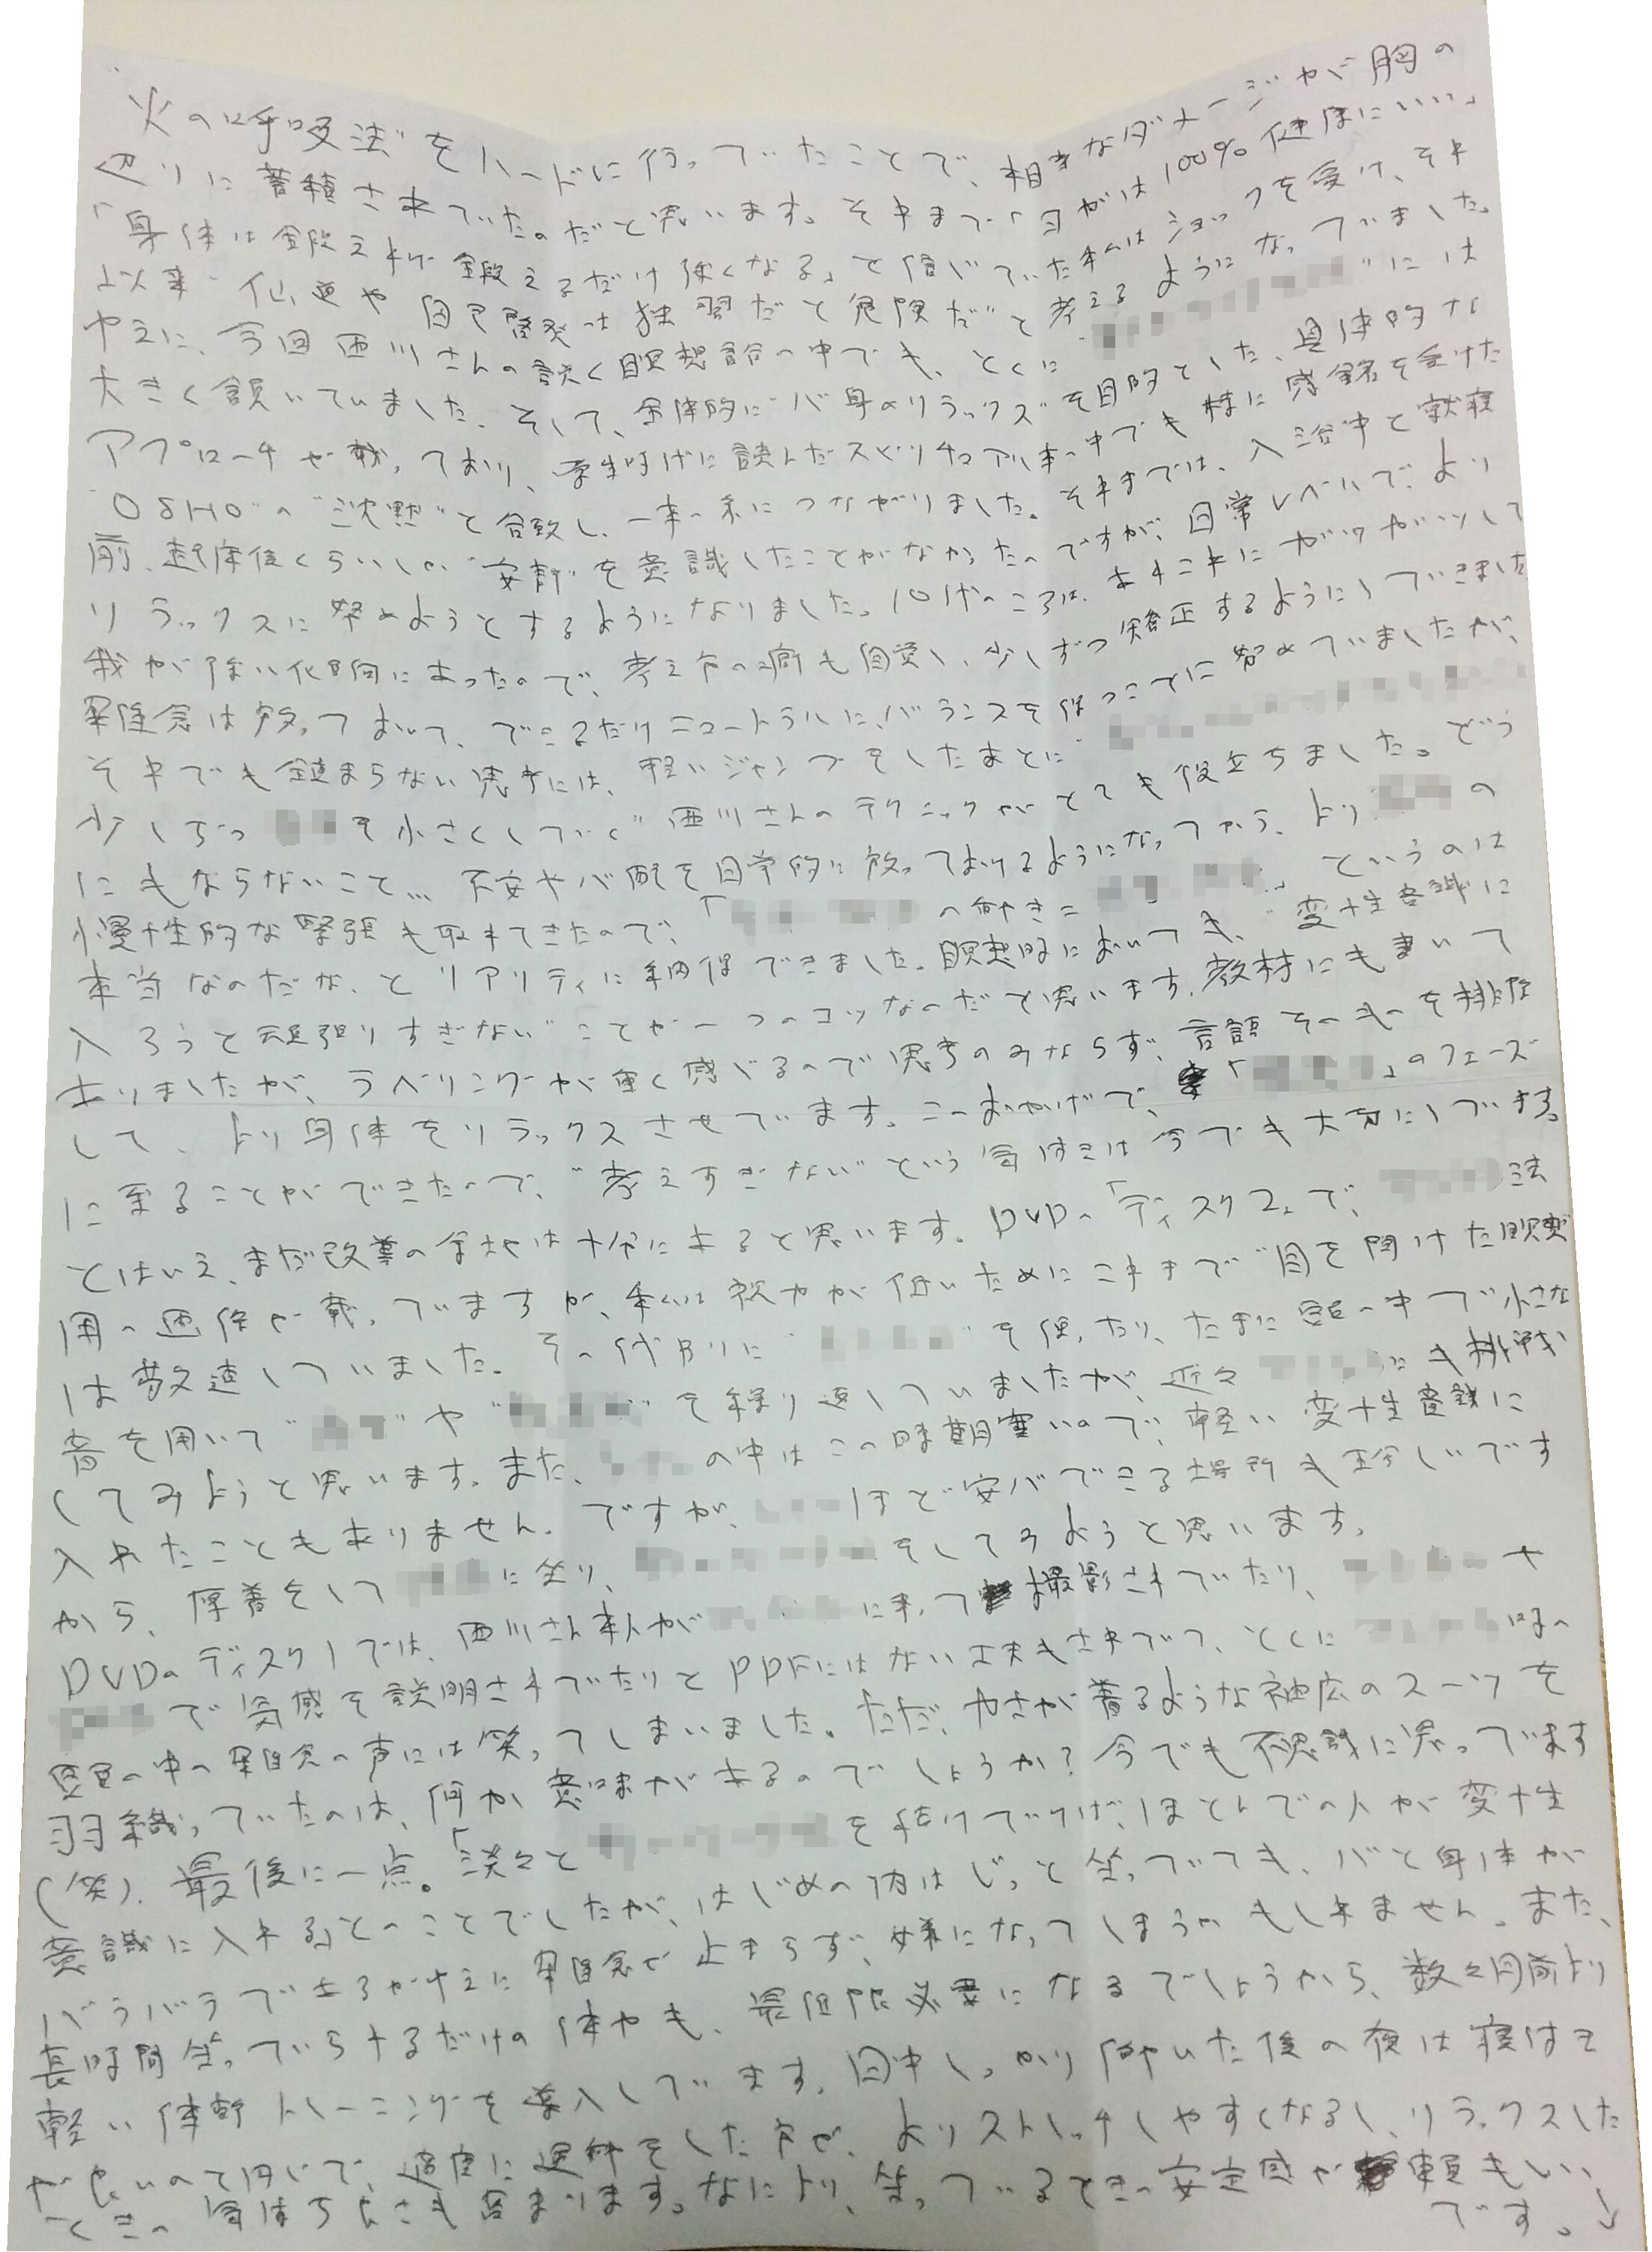 "火の呼吸法"をハードに行っていたことで、相当なダメージが胸の
辺りに蓄積されていたのだと思います。それまで「ヨガは100%健康にいい」
「身体は鍛えれば鍛えるだけ強くなる」と信じていた私はショックを受け、それ
以来"仙道や自己啓発は独習だと危険だ"と考えるようになっていました。
ゆえに、今回西川さんの説く瞑想論の中でも、とくに" "には
大きく頷いていました。そして、全体的に"心身のリラックス"を目的とした、具体的な
アプローチが載っており、学生時代に読んだスピリチュアル本の中でも特に感銘を受けた
"OSHO"の"沈黙"と合致し、一本の糸につながりました。それまでは、入浴中と就寝
前、起床後くらいしか"安静"を意識したことがなかったのですが、日常レベルで、より
リラックスに努めようとするようになりました。10代のころは、あれこれにガツガツして
我が強い傾向にあったので、考え方の癖も自覚し、少しずつ矯正するようにしてきました
雑念は放っておいて、できるだけニュートラルに、バランスを保つことに努めていましたが、
それでも鎮まらない思考には、軽いジャンプをしたあとに"
少しずつ を小さくしていく"西川さんのテクニックがとても役立ちました。どう
にもならないこと… 不安や心配を日常的に放っておけるようになってから、より の
慢性的な緊張も取れてきたので、「 の動き= 」というのは
本当なのだな、とリアリティに納得できました。瞑想時においても、"変性意識に
入ろうと頑張りすぎない"ことが一つのコツなのだと思います。教材にも書いて
ありましたが、ラベリングが重く感じるので思考のみならず、言語そのものを排除
して、より身体をリラックスさせています。このおかげで、「 」のフェーズ
に至ることができたので、"考えすぎない"という気付きは今でも大切にしています。
とはいえ、まだ改善の余地は十分にあると思います。DVDの「ディスク2」で、 法
用の画像が載っていますが、私は視力が低いためにこれまで"目を開けた瞑想
は敬遠していました。その代わりに" "を使ったり、たまに部屋の中で小さな
音を用いて" "や" "を繰り返していましたが、近々 にも挑戦
してみようと思います。また、 の中はこの時期寒いので、軽い変性意識に
入れたこともありません。ですが、 ほど安心できる場所も珍しいです
から、厚着をして に坐り、 をしてみようと思います。
DVDのディスク1では、西川さん本人が に来って撮影されていたり、 や
で気感を説明されていたりとPDFにはない工夫もされてて、とくに 時の
部屋の中の雑念の声には笑ってしまいました。ただ、やさが着るような袖広のスーツを
羽織っていたのは、何か意味があるのでしょうか?今でも不思議に思っています
(笑)。最後に一点。「淡々と を続けていけば、ほとんどの人が変性
意識に入れる」とのことでしたが、はじめの内はじっと坐ってても、心と身体が
バラバラであるがゆえに雑念で止まらず、嫌になってしまうかもしれません。また、
長時間坐っていられるだけの体力も、最低限必要になるでしょうから、数ヶ月前より
軽い体幹トレーニングを導入しています。日中しっかり動いた後の夜は寝付き
が良いのと同じで、適度に運動をした方が、よりストレッチしやすくなるし、リラックスした
ときの気持ち良さも高まります。なにより、坐っているときの安定感や もいい
です。↓